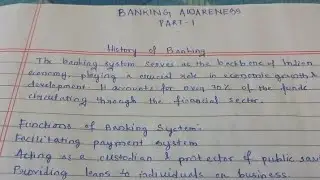 BANKING AWARENESS
PART-1
History of Banking
The banking system serves as the backbone of Indian
economy, playing a crucial role in economic growth &
development. It accounts for over 70% of the funds
circulating through the financial sector.
Functions of Banking System:-
Facilitating payment system
Acting as a custodian & protector of public sav
Providing loans to individuals or business.